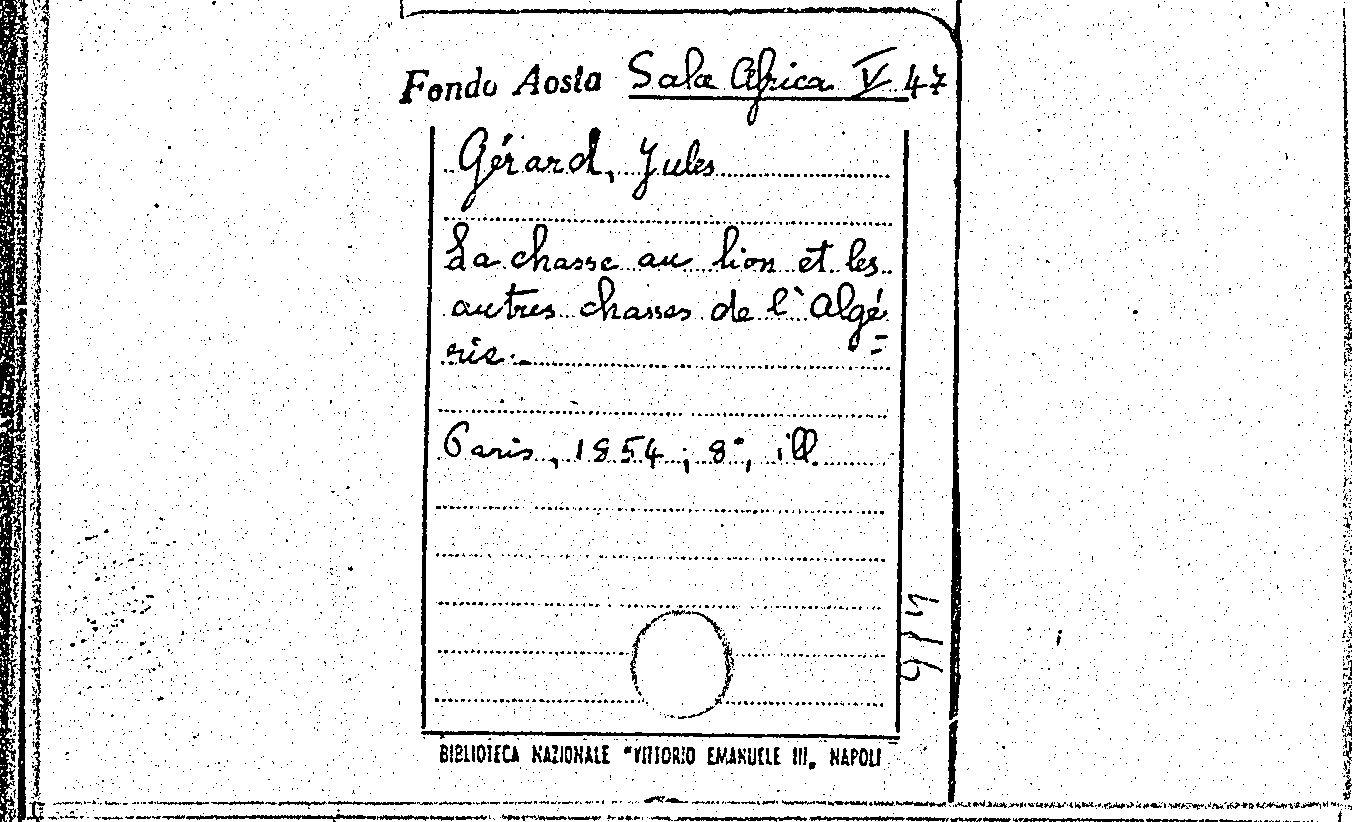 Fondo Aosta Sala Africa V 47
Gérard, Jules
La chasse au lion et les
autres chasses de l'Algé=
rie.
Paris, 1854; 8°, ill.
BIBLIOTECA NAZIONALE "VITTORIO EMANUELE III„ NAPOLI